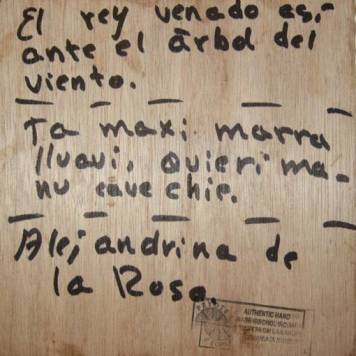 El rey venado así
ante el árbol del
viento.
Ta maxi marra
lluavi, quieri ma-
nu caue chie.
Alejandrina de
la Rosa.
AUTHENTIC HAND